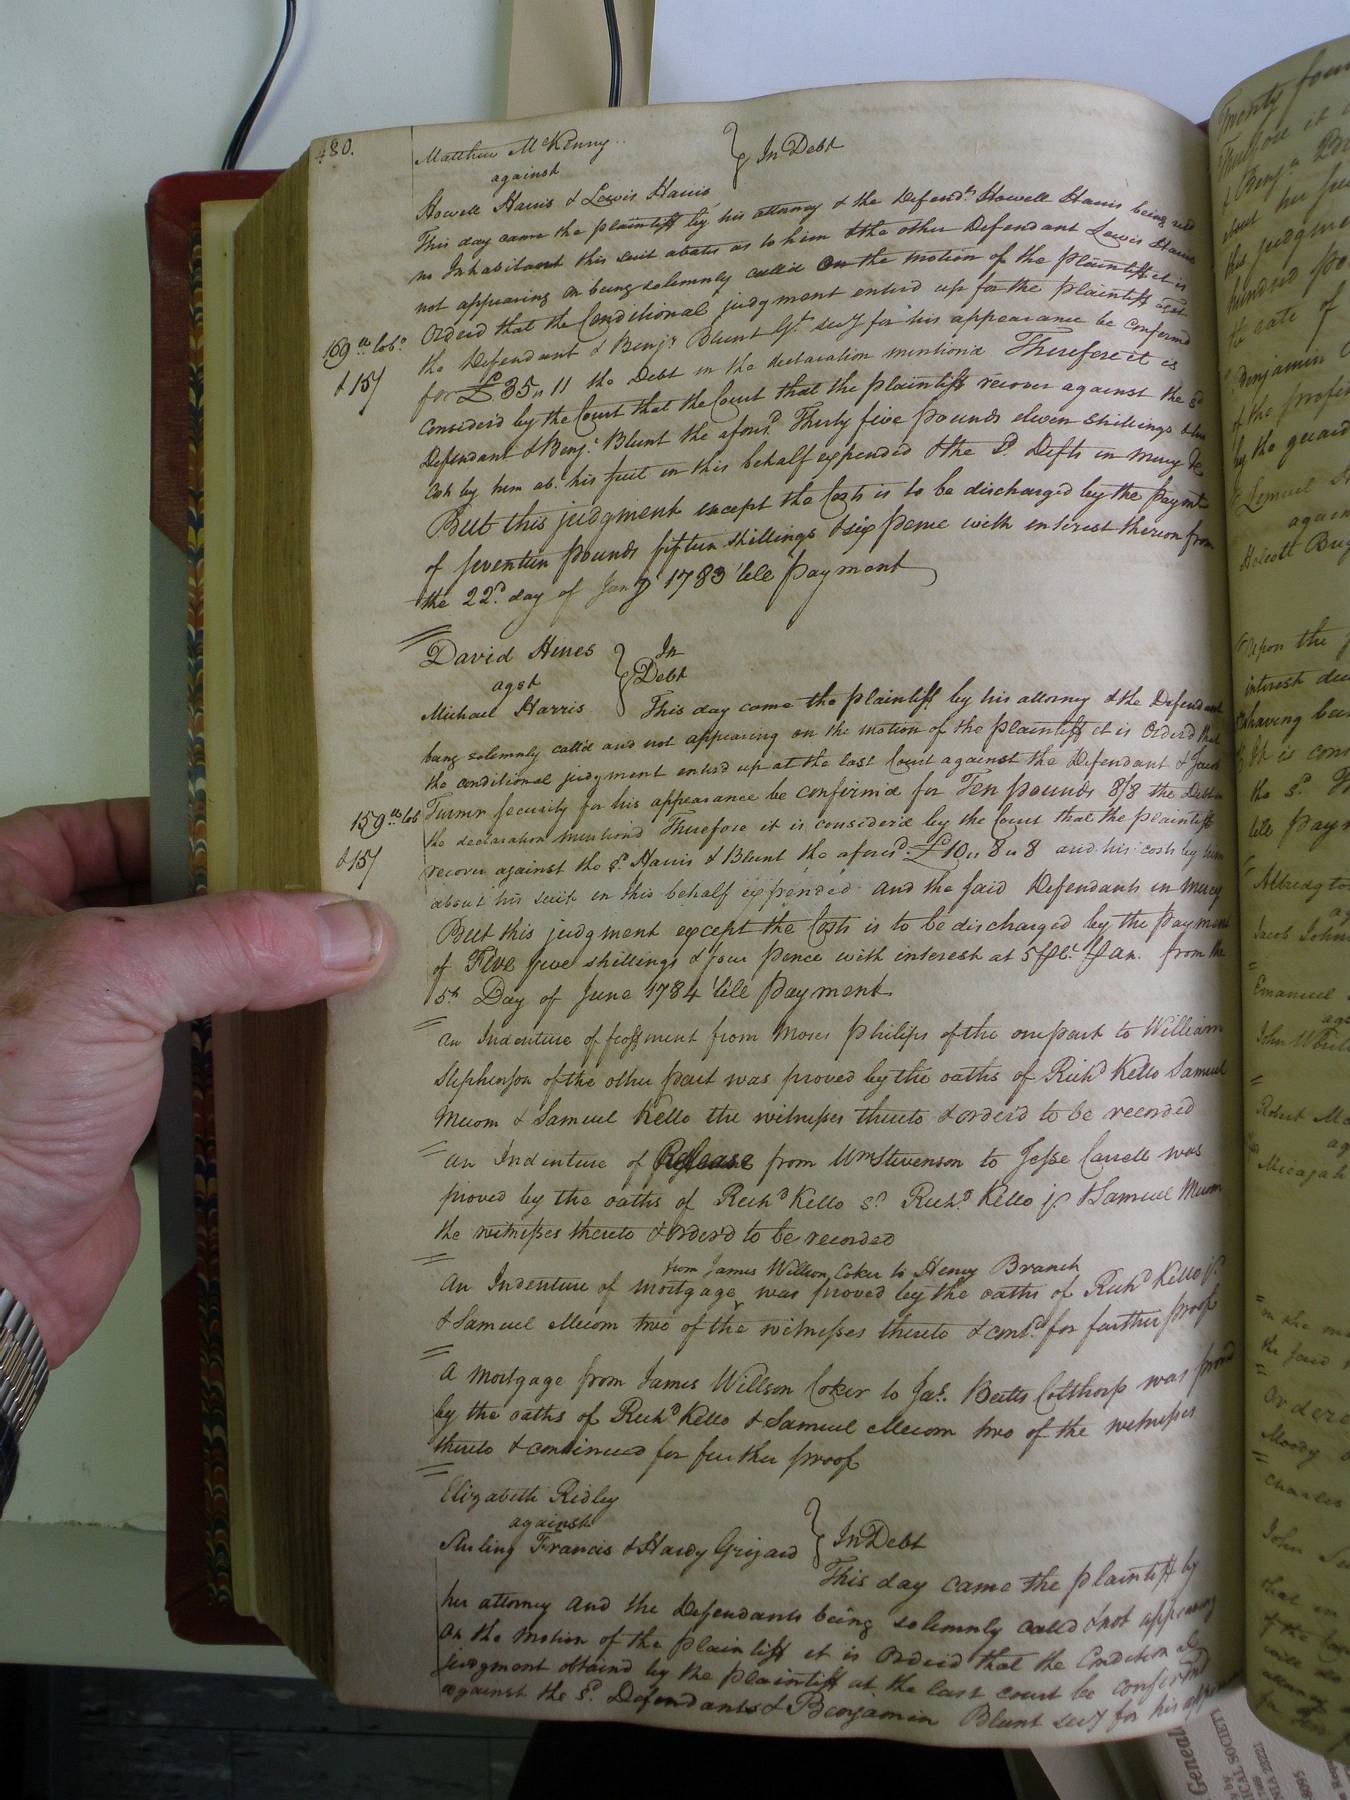 480.
Matthew McKenny
against
Howell Harris & Lewis Harris
} In Debt
This day came the plaintiff by his attorney & the Defendt. Howell Harris being
no Inhabitant this suit abates as to him & the other Defendant Lewis Harris
not appearing on being solemnly called on the motion of the plaintiff it is
Orderd that the Conditional judgment enterd up for the plaintiff agst
the Defendant & Benja. Blunt Gt. secy for his appearance be confirmd
for £35,, 11 the Debt in the declaration mentiond Therefore it is
Considerd by the Court that the Court that the plaintiff recover against the sd.
Defendant & Benja. Blunt the aforesd. Thirty five pounds eleven shillings &
Costs by him ab. his suit in this behalf expended & the sd. Defts in mercy &c
But this judgment except the Costs is to be discharged by the paymt
of seventeen pounds fifteen shillings & six pence with interest thereon from
the 22d. day of Jany 1783 till payment
169 lbs. tobo.
& 15/
David Hines
agst
Michael Harris
} In
Debt
This day came the plaintiff by his attorney & the Defendant
being solemnly calld and not appearing on the motion of the plaintiff it is Orderd that
the conditional judgment enterd up at the last Court against the Defendant & Jacob
Turner security for his appearance be confirmd for Ten pounds 8/8 the Debt in
the declaration mentiond Therefore it is considerd by the Court that the plaintiff
recover against the sd. Harris & Blunt the aforesd. £10,, 8,, 8 and his costs by him
about his suit in this behalf expended and the said Defendants in mercy
But this judgment except the Costs is to be discharged by the payment
of Five five shillings & four pence with interest at 5 Per Ct. Per An. from the
5th Day of June 1784 till payment
159 lbs tob
& 15/
An Indenture of feoffment from Moses Philips of the one part to William
Stephenson of the other part was proved by the oaths of Richd Kello Samuel
Mecom & Samuel Kello the witnesses thereto & orderd to be recorded
An Indenture of Release from Wm Stevenson to Jesse Carrell was
proved by the oaths of Richd Kello Sr. Richd. Kello jr. & Samuel Mecom
the witnesses thereto & Orderd to be recorded
from James Willson Coker to Henry Branch
An Indenture of mortgage was proved by the oaths of Richd Kello jr.
& Samuel Mecom two of the witnesses thereto & contd. for further proof
A Mortgage from James Willson Coker to Jas. Betts Colthorp was proved
by the oaths of Richd Kello & Samuel Mecom two of the witnesses
thereto & continued for further proof
Elizabeth Ridley
against
Sterling Francis & Hardy Grizard
} In Debt
This day came the plaintiff by
her attorney and the Defendants being solemnly called & not appearing
On the motion of the plaintiff it is Orderd that the Conditional
judgment obtaind by the plaintiff at the last court be confirmd
against the sd. Defendants & Benjamin Blunt secy for his
Twenty four
Therefore it
& Benja.
about her
this judgme
hundred
the rate of
Benjamin
of the
by the
Lemuel
again
Upon the
interest
having been
It is con
the sd.
till paym
Jacob John
Emanuel
John
Robert
Micajah
the said
Ordere
Moody
Charles
John
that
of the
General
CAL SOCIETY